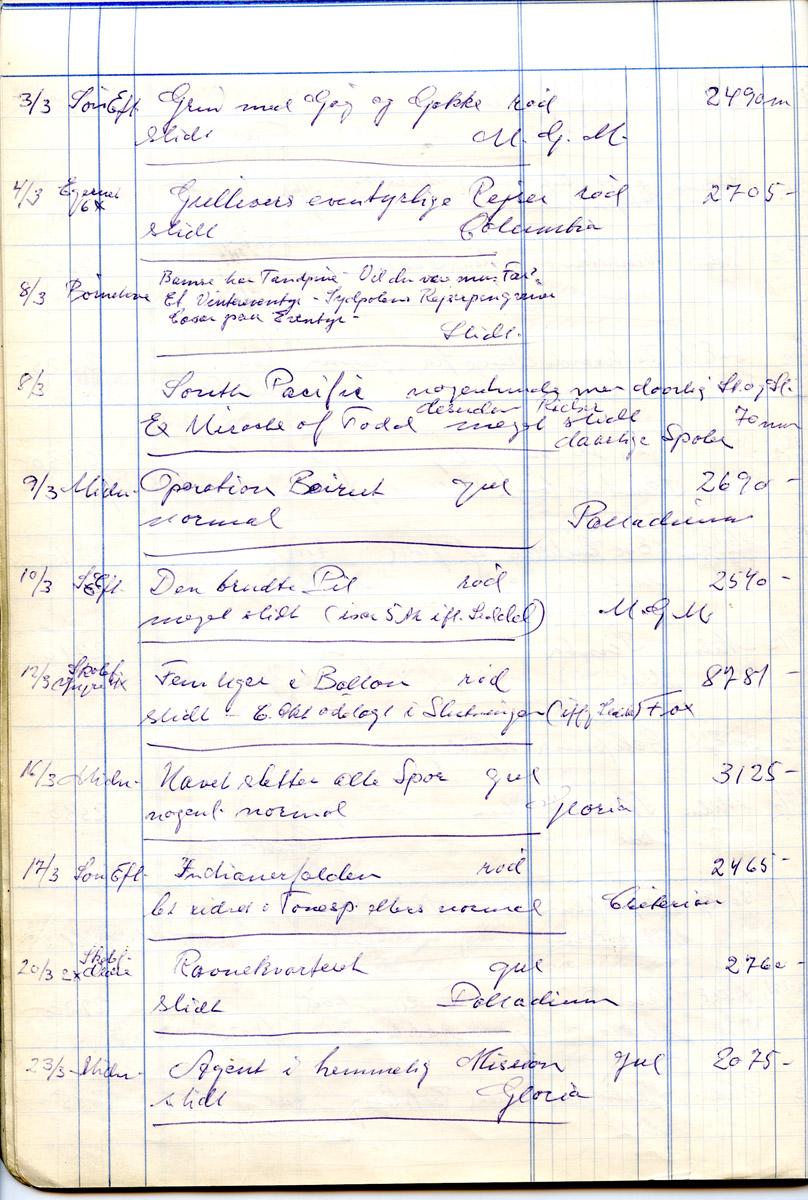 3/3 Søn Eft. Grin med Gøg og Gokke rød 2490 m
slidt M.G.M.
4/3 Egernet 6x Gullivers eventyrlige Rejser rød 2705 -
slidt Columbia
8/3 Bamse har Tandpine - Vil du være min Far? -
Et Vintereventyr - Sydpolens Rejsepingviner
Lasse paa Eventyr -
Slidt.
8/3 South Pacific nogenlunde men daarlig St. og Sl.
desuden Ridser
Ex Miracle of Todd meget slidt 70 mm
daarlige Spoler
9/3 Midn. Operation Beirut gul 2690 -
normal Palladium
10/3 S. Eft. Den brudte Pil rød 2540 -
meget slidt (især 5. Akt ifl. Seddel) M.G.M.
12/3 Fem Uger i Ballon rød 8781 -
slidt - 6. Akt ødelagt i Slutningen Fox
16/3 Midn. Navet sletter alle Spor gul 3125 -
nogenl. normal Gloria
17/3 Søn Eft. Indianerfælden rød 2465 -
let ridset i Tonesp. ellers normal Criterion
20/3 2x Ravnekvarteret gul 2760 -
slidt Palladium
23/3 - Midn. Agent i hemmelig Mission gul 2075 -
slidt Gloria